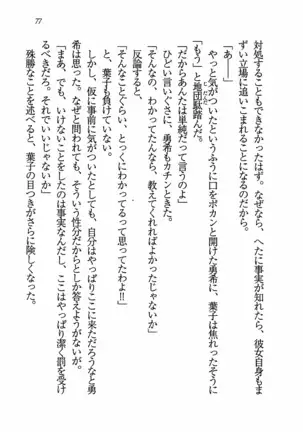 77
対処することもできなかったはず。なぜなら、へたに事実が知れたら、彼女自身もま
ずい立場に追いこまれることになるのだから。
「あ――」
やっと気がついたというふうに口をポカンと開けた勇希に、葉子は焦れったそうに
「もう」と地団駄踏んだ。
「だからあんたは単純だって言うのよ」
ひどい言いぐさに、勇希もカチンとくる。
「そんなの、わかってたんなら、教えてくれればよかったじゃないか」
反論すると、
「そんなことぐらい、とっくにわかってるって思ってたわよ!!」
と、葉子も負けていない。
しかし、仮に事前に気がついたとしても、自分はやっぱりここに来ただろうなと勇
希は思った。なぜと問われても、そういう性分だからとしか答えようがないが。
「まあ、でも、いけないことをしたのは事実なんだし、ここはやっぱり潔く罰を受け
るべきだろ。それでいいじゃないか」
殊勝なことを述べると、葉子の目つきがさらに険しくなった。